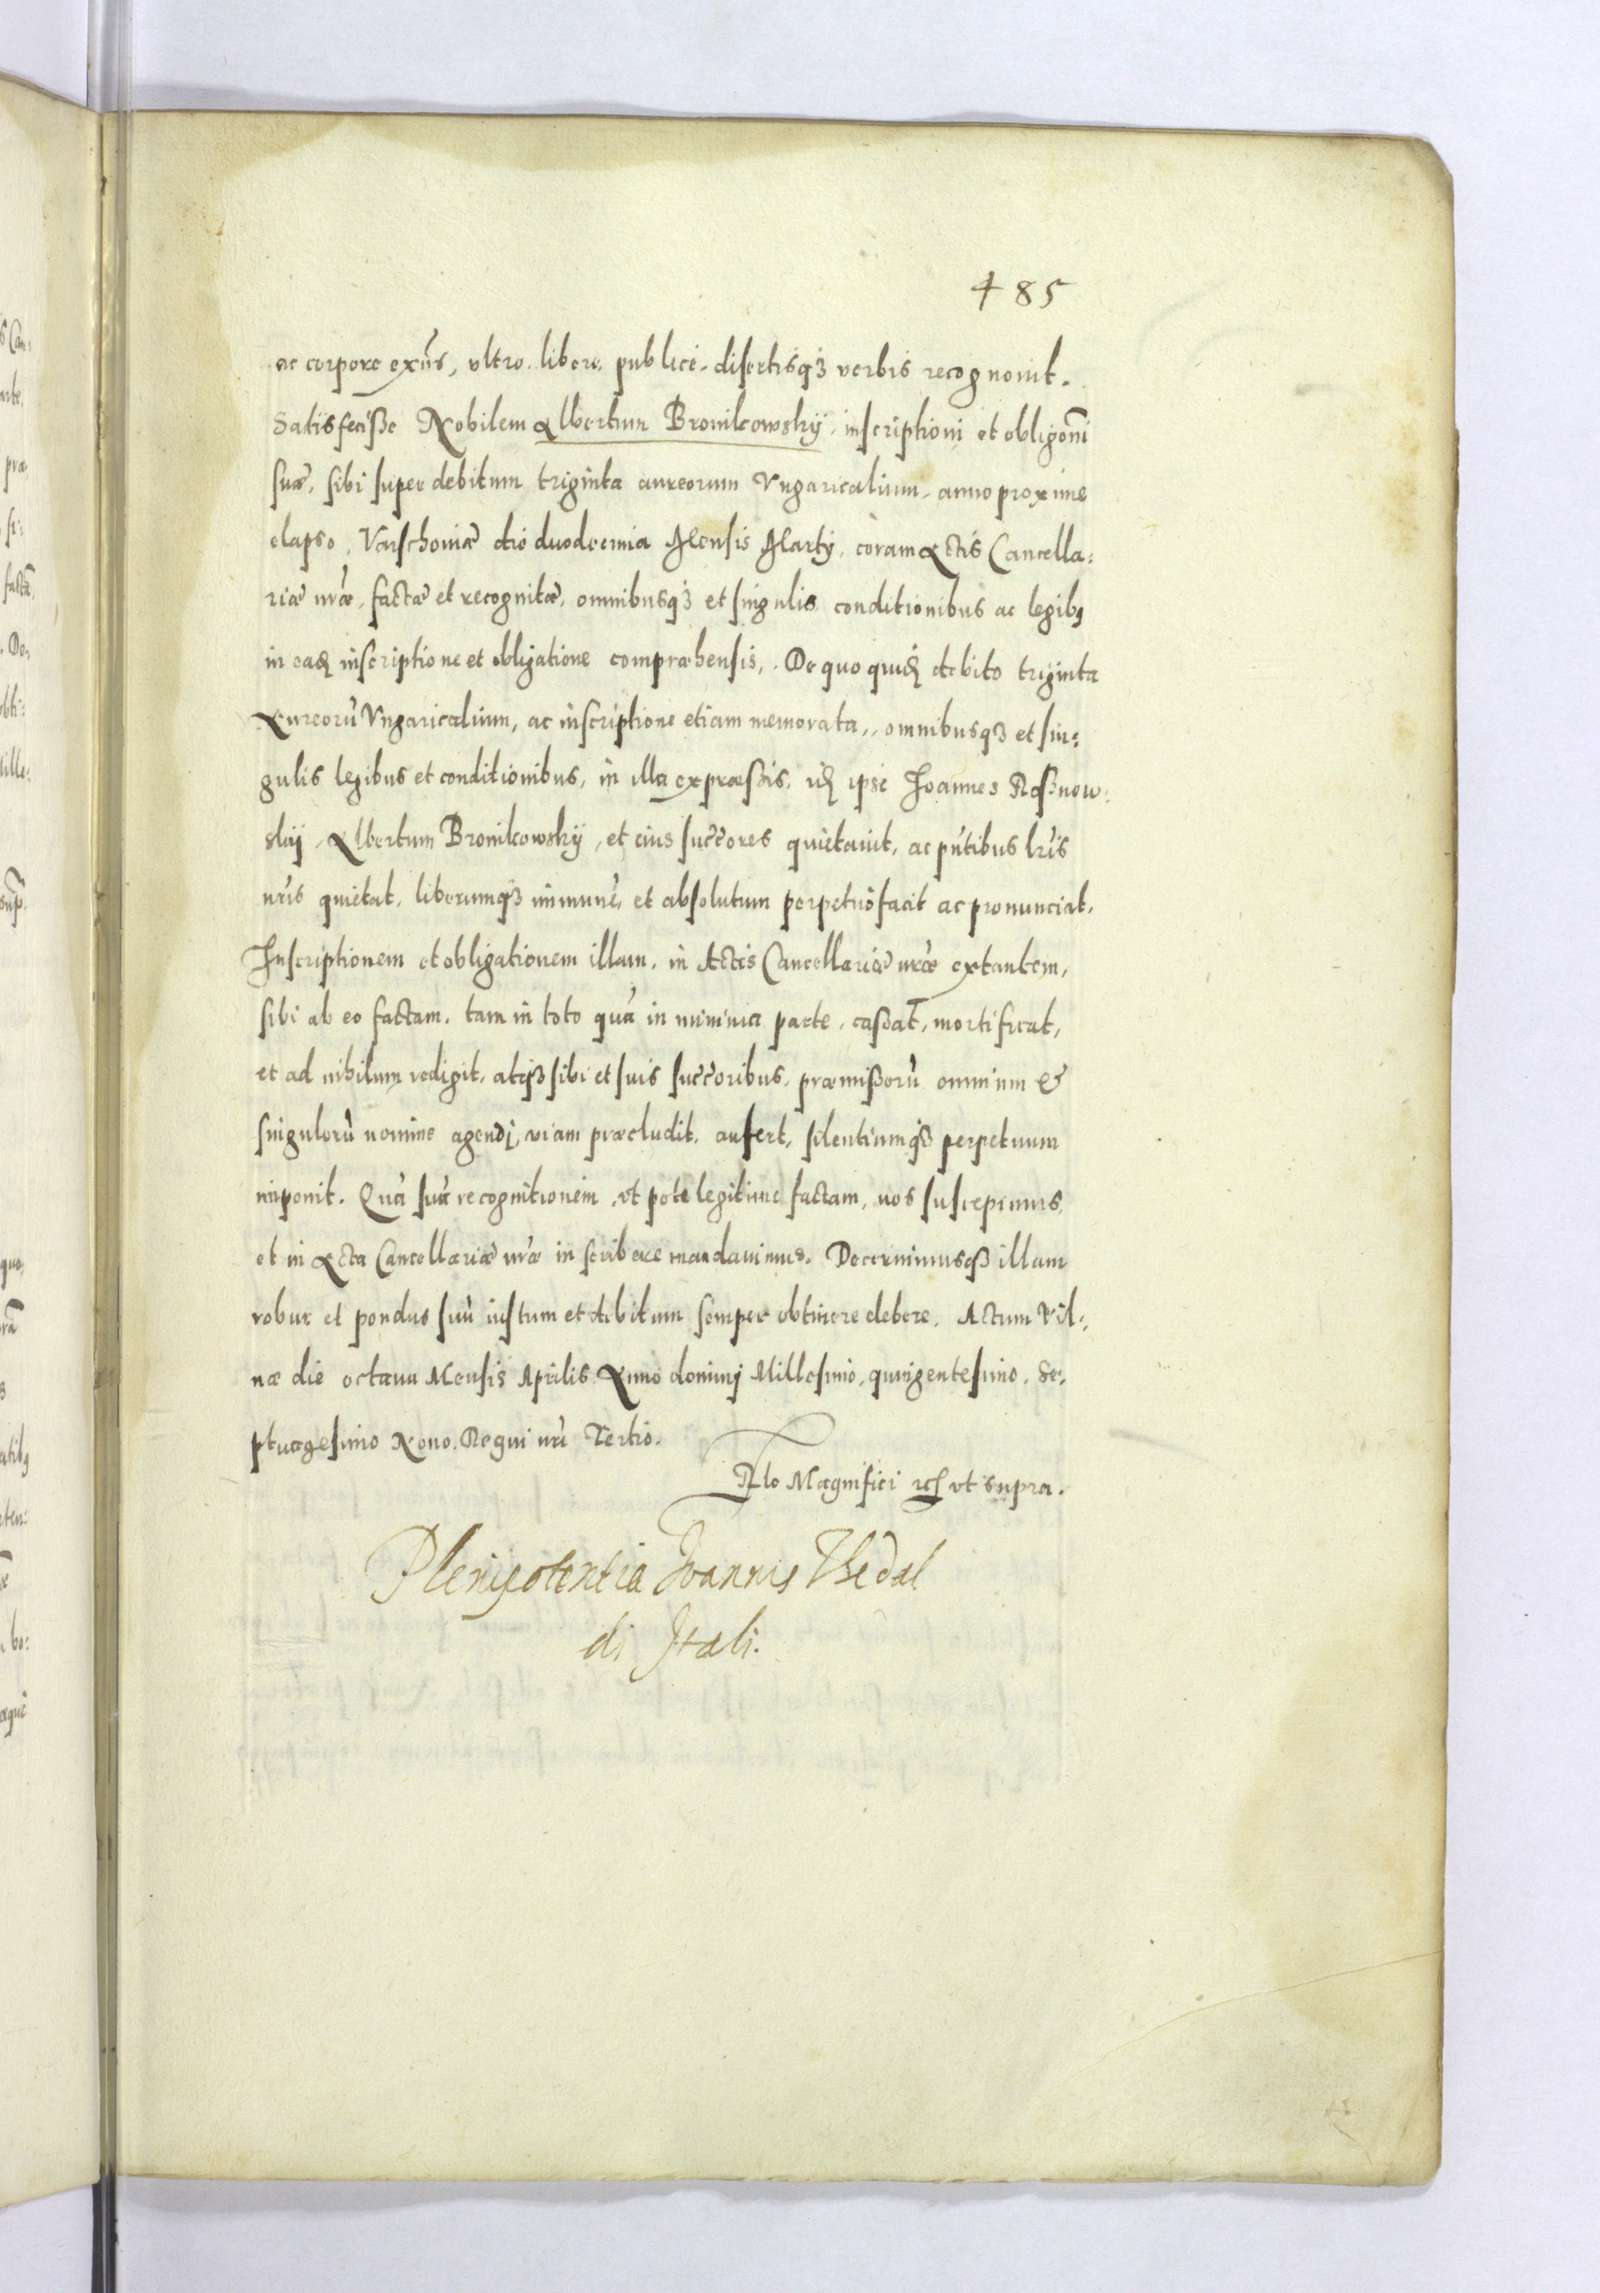 485
ac corpore exñs, vltro, libere, publice, disertisq3 verbis recognouit.
Satisfecisse Nobilem Albertum Bronikowskÿ, inscriptioni et obligõni
suæ, sibi super debitum triginta aureorum Vngaricalium, anno proxime
elapso, Varschouiæ die duodecima Mensis Martÿ, coram Actis Cancella:
riæ nr̃æ, factæ et recognitæ, omnibusq3 et singulis conditionibus ac legib9
in eadȩ inscriptione et obligatione comprehensis, De quo quidȩ debito triginta
Aureorũ Vngaricalium, ac inscriptione etiam memorata, omnibusq3 et sin:
gulis legibus et conditionibus, in illa expressis, idȩ ipse Joannes Rosnow:
skÿ, Albertum Bronikowskÿ, et eius succ̃ores quietauit, ac pñtibus lr̃is
nr̃is quietat, liberumq3 immunẽ, et absolutum perpetuo facit ac pronunciat,
Inscriptionem et obligationem illam, in Actis Cancellariæ nr̃æ extantem,
sibi ab eo factam, tam in toto quã in minima parte, cassat, mortificat,
et ad nihilum redigit, atq3 sibi et suis succ̃oribus, præmissorũ omnium &
singulorũ nomine agendi, viam præcludit, aufert, silentiumq3 perpetuum
imponit. Quã suã recognitionem, vt pote legitime factam, nos suscepimus,
et in Acta Cancellariæ nr̃æ inscribere mandauimus. Decernimusq3 illam
robur et pondus suũ iustum et debitum semper obtinere debere. Actum Vil:
næ die octaua Mensis Aprilis Anno dominj Millesimo, quingentesimo, Se:
ptuagesimo Nono. Regni nr̃i Tertio.
Rlo Magnifici rc̃ vt supra.
Plenipotentia Joannis Thedal
di Itali.